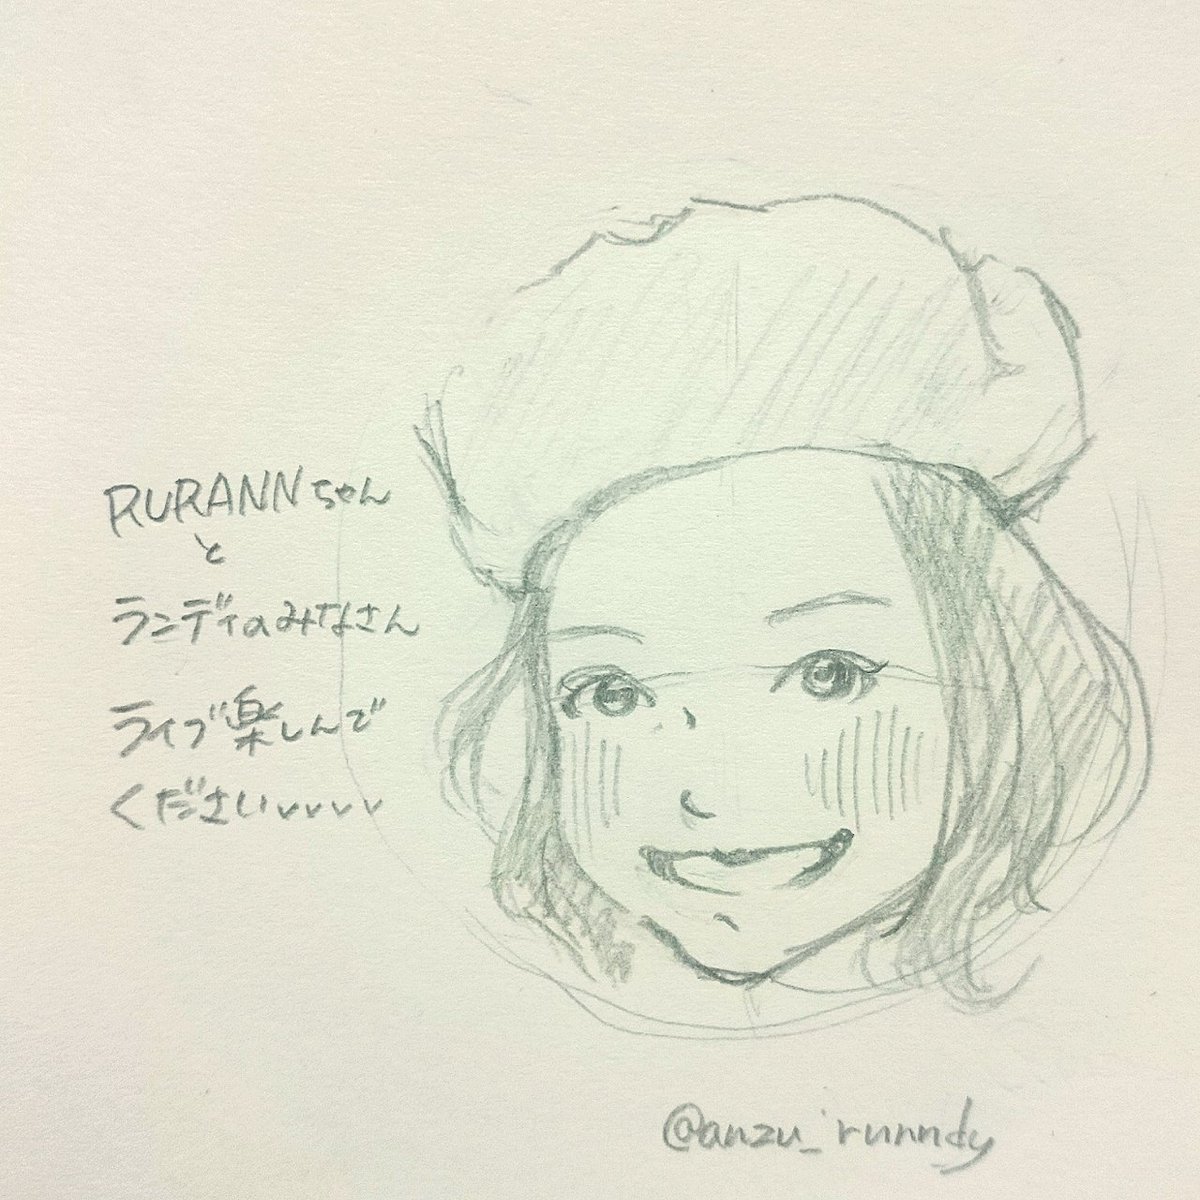 RURANNちゃん
と
ランディのみなさん
ライブ楽しんで
くださいvvvv
@anzu_runndy